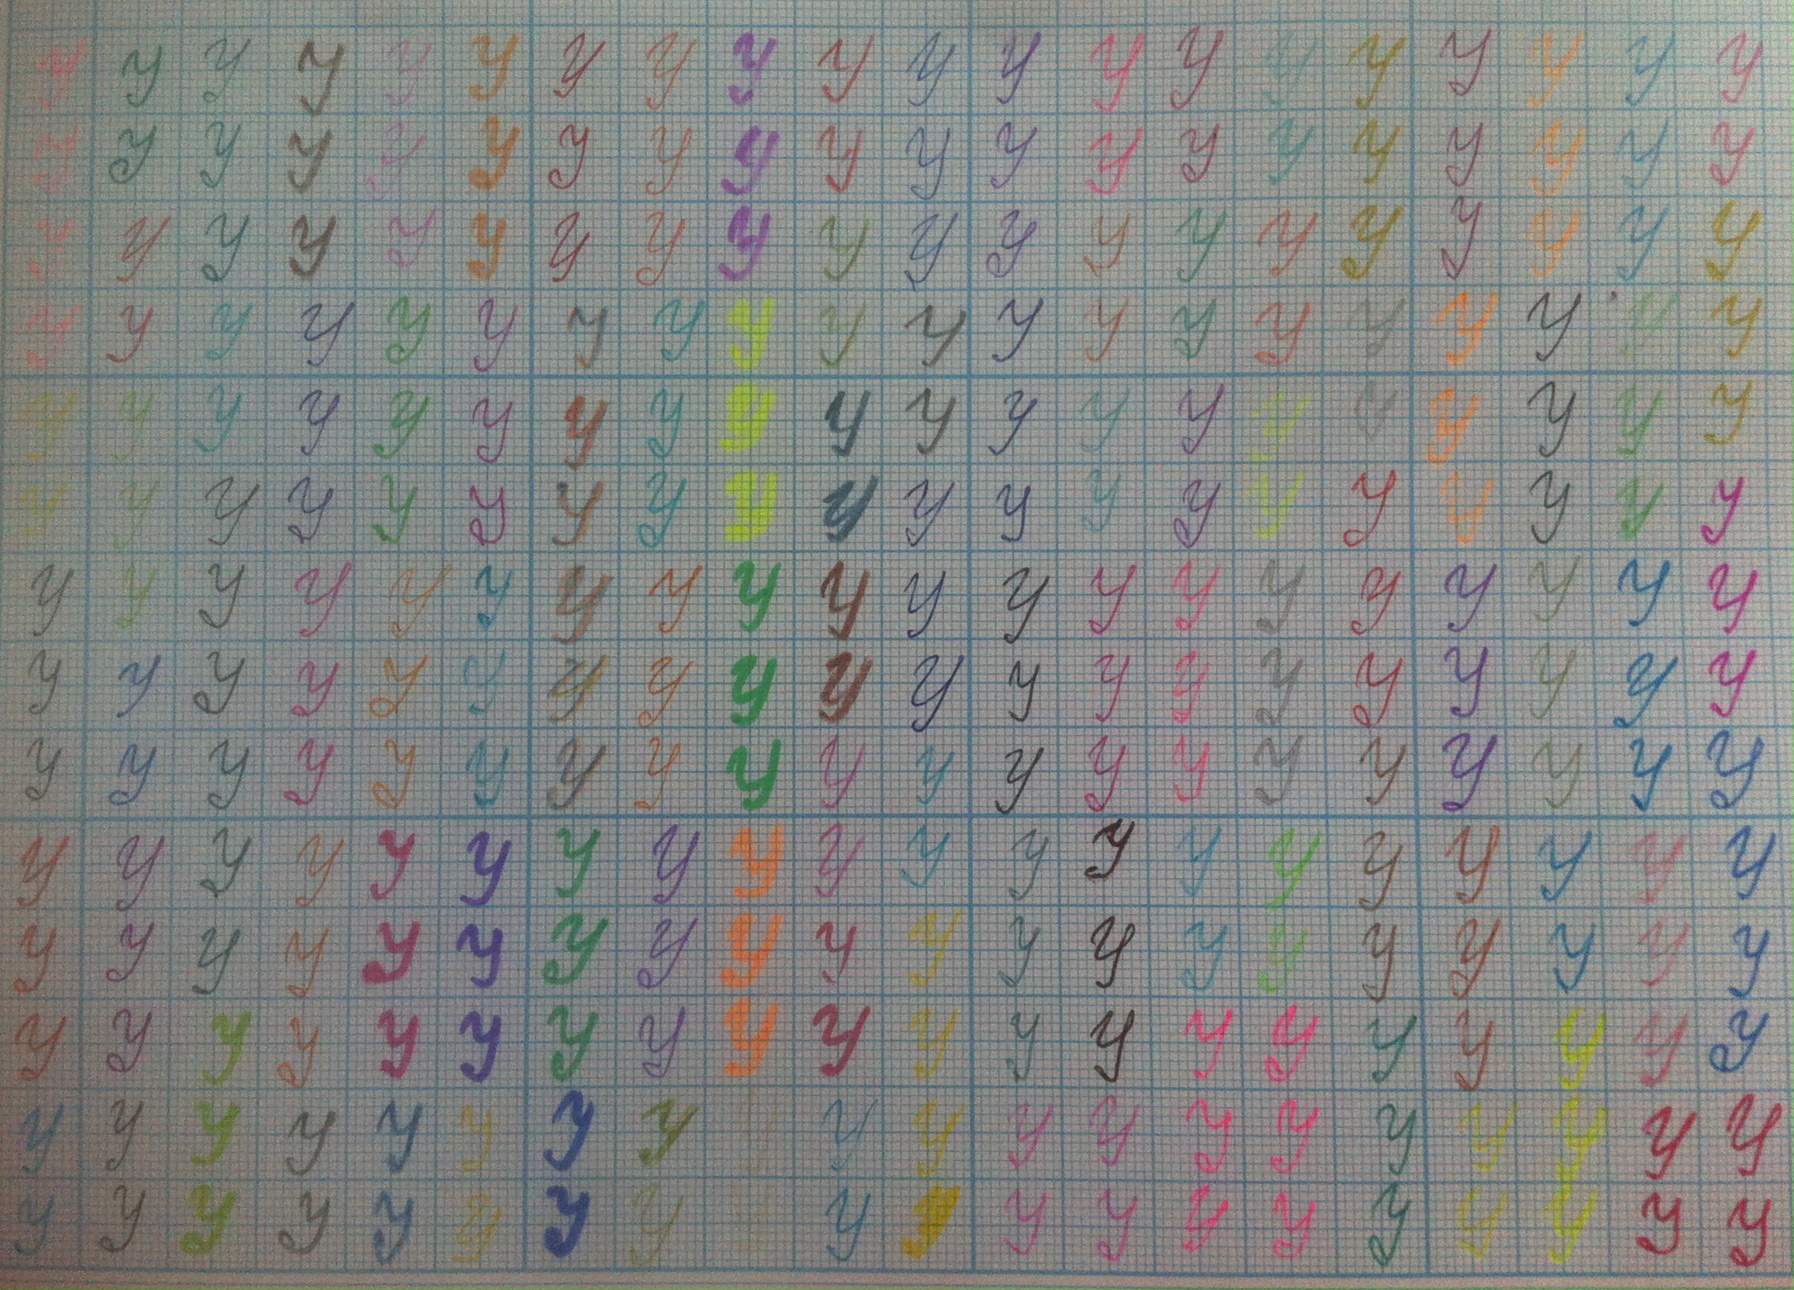 y y y y y y y y y y y y y y y y y y y y
y y y y y y y y y y y y y y y y y y y y
y y y y y y y y y y y y y y y y y y y y
y y y y y y y y y y y y y y y y y y y y
y y y y y y y y y y y y y y y y y y y y
y y y y y y y y y y y y y y y y y y y y
y y y y y y y y y y y y y y y y y y y y
y y y y y y y y y y y y y y y y y y y y
y y y y y y y y y y y y y y y y y y y y
y y y y y y y y y y y y y y y y y y y y
y y y y y y y y y y y y y y y y y y y y
y y y y y y y y y y y y y y y y y y y y
y y y y y y y y y y y y y y y y y y y y
y y y y y y y y y y y y y y y y y y y y